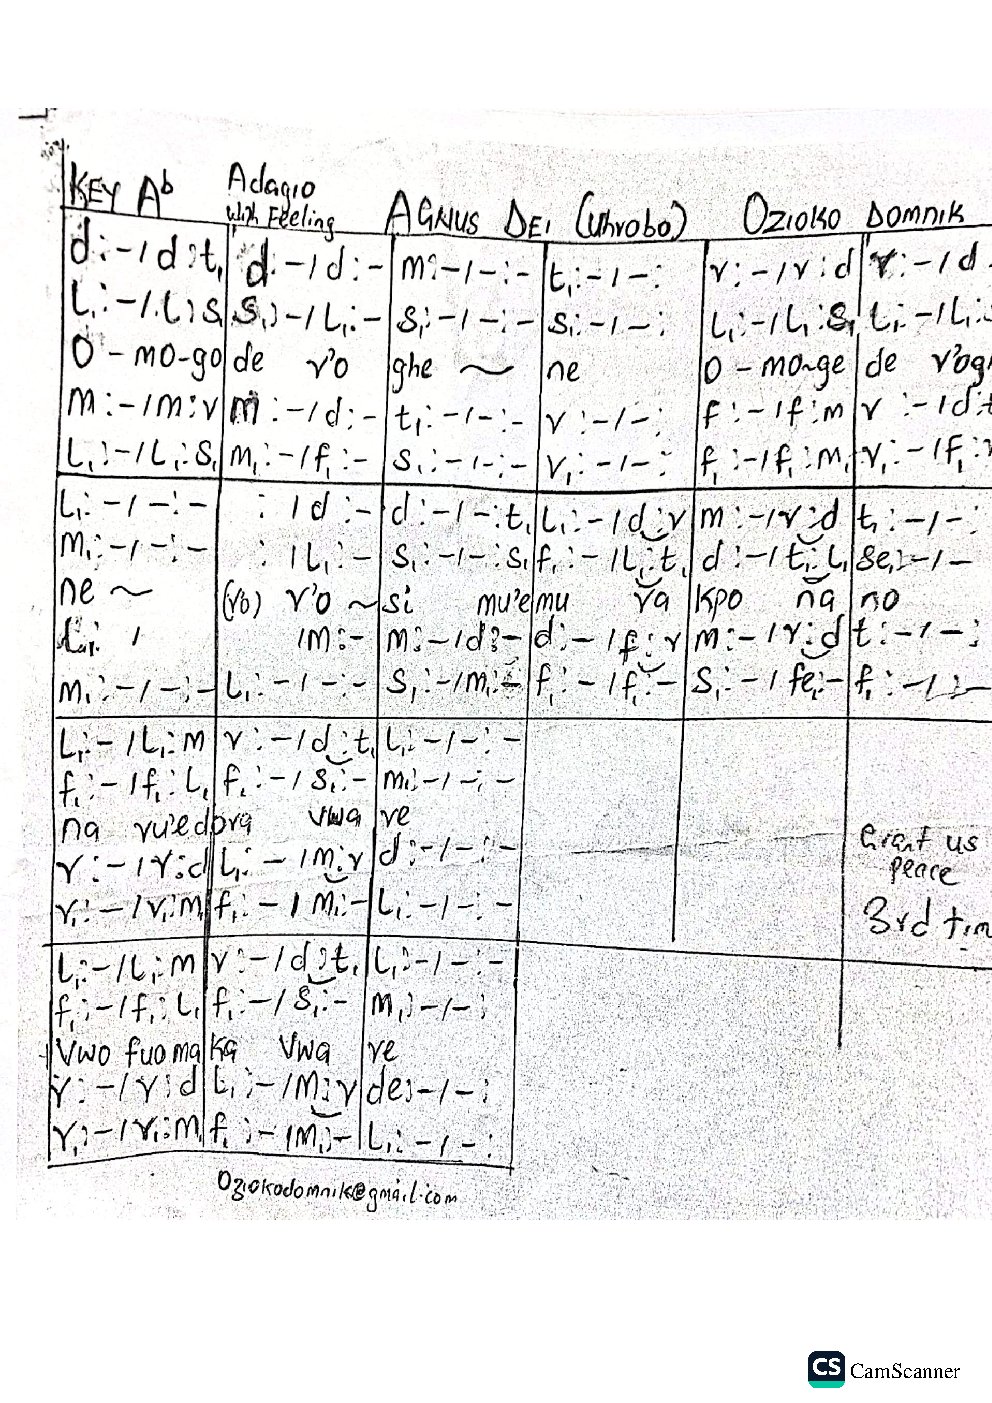 KEY Ab Adagio With Feeling AGNUS DEI (Uhrobo) OZIOKO DOMNIK
d:-/d:t, d:-/d:- m:-/-:- t,:-/-: r:-/r:d r:-/d
L,:-/L,:S, S,:-/L,:- S,:-/-:- S,:-/-: L,:-/L,:S, L,:-/L,:
O-mo-go de r'o ghe ~ ne O-mo-ge de r'og
m:-/m:r m:-/d:- t,:-/-:- r:-/-: f:-/f:m r:-/d:t
L,:-/L,:S, m,:-/f,:- S,:-/-:- r,:-/-: f,:-/f,:m, r,:-/f,:
L,:-/-:- :/d:- d:-/-:t, L,:-/d:r m:-/r:d t,:-/-:
m,:-/-:- :/L,:- S,:-/-:S, f,:-/L,:t, d:-/t,:L, Se,:-/-
ne ~ (ro) r'o ~ si mu'e mu ra kpo na no
/m:- m:-/d:- d:-/f:r m:-/r:d t:-/-:
m,:-/-:- L,:-/-:- S,:-/m,:- f,:-/f,:- S,:-/fe,:- f,:-/:-
L,:-/L,:m r:-/d:t, L,:-/-:-
f,:-/f,:L, f,:-/S,:- m,:-/-:-
na ru'edora vwa re
r:-/r:d L,:-/m:r d:-/-:-
r,:-/r,:m, f,:-/m,:- L,:-/-:-
Grant us
peace
3rd tim
L,:-/L,:m r:-/d:t, L,:-/-:-
f,:-/f,:L, f,:-/S,:- m,:-/-:
Vwo fuoma ka vwa re
r:-/r:d L,:-/m:r de:-/-:
r,:-/r,:m, f,:-/m,:- L,:-/-:
Oziokodomnik@gmail.com
CS CamScanner